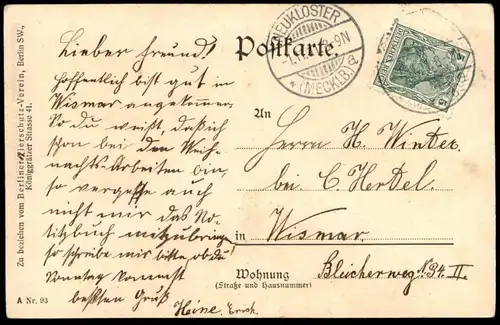 Postkarte.
NEUKLOSTER
(MECKLB.) a
Lieber Freund!
Hoffentlich bist gut in
Wismar angekommen.
So du weißt, daß ich
schon bei den Weih-
nachts-Arbeiten bin,
so vergesse auch
nicht mir das No-
tizbuch mitzubringen
so schreibe mir bitte, ob du
Sonntag kommst
besten Gruß
Heine. Erich.
An
Herrn H. Winter
bei C. Hertel.
in Wismar.
Wohnung Bleicherweg № 34 II
(Straße und Hausnummer)
Zu beziehen vom Berliner Tierschutz-Verein, Berlin SW.,
Königgrätzer Strasse 41.
A Nr. 93